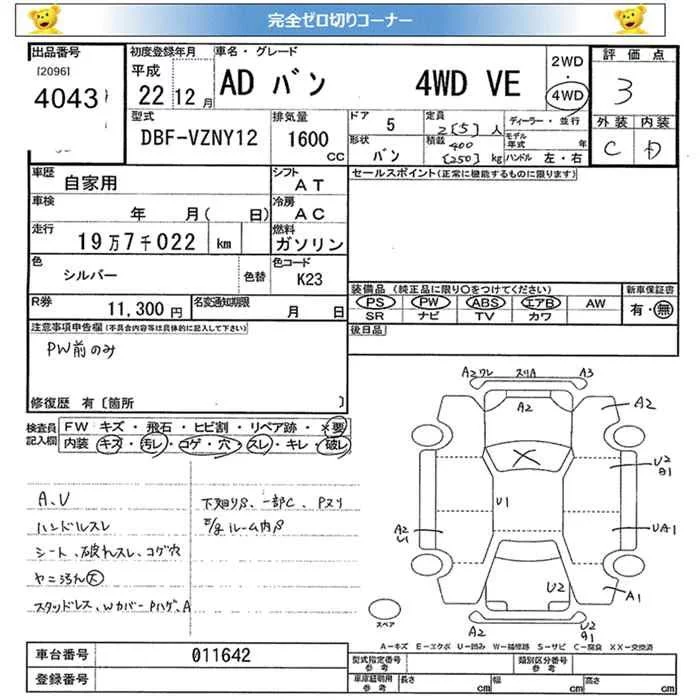 完全ゼロ切りコーナー
出品番号
[2096]
4043
初度登録年月
平成
22 12月
車名・グレード
AD バン 4WD VE
2WD
・
4WD
評価点
3
外装 内装
C D
型式
DBF-VZNY12
排気量
1600
CC
ドア
5
形状
バン
定員
2[5]人
積載 400
[250]kg
ディーラー・並行
モデル
年式 年
ハンドル 左・右
車歴
自家用
シフト
AT
車検
年 月( 日)
冷房
AC
走行
19万7千022 km
燃料
ガソリン
色
シルバー
色替
色コード
K23
R券
11,300円
名変通知期限
月 日
セールスポイント(正常に機能するものに限ります)
装備品 (純正品に限り○をつけてください)
PS PW ABS エアB AW
SR ナビ TV カワ
新車保証書
有・無
後日品
注意事項申告欄(不具合内容等は具体的に記入して下さい)
PW前のみ
修復歴 有〔箇所 〕
検査員
記入欄
FW キズ・飛石・ヒビ割・リペア跡・×要
内装 キズ・汚レ・コゲ・穴・スレ・キレ・破レ
A、U
ハンドルスレ
シート、破れスレ、コゲ穴
ヤニ
大
スタッドレス、WカバーPハゲ、A
下廻りS、一部C、Pヌリ
ルーム内S
A2 ワレ スリA A3
A2
A2
U2
S1
U1
A2
U1
UA1
A1
U2
A2
U2
S1
スペア
A-キズ E-エクボ U-凹み W-補修跡 S-サビ C-腐食 XX-交換済
車台番号
011642
登録番号
型式指定番号
参考
類別区分番号
参考
車庫証明用
参考
長さ cm
幅 cm
高さ cm